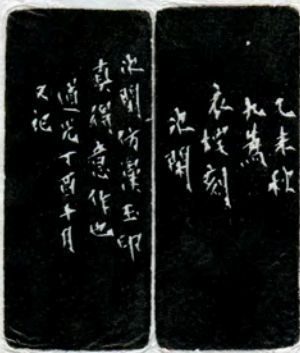 乙未秋
九為
衣垞刻
次閑
次閑仿漢玉印
真得意作也
道光丁酉十月
又記